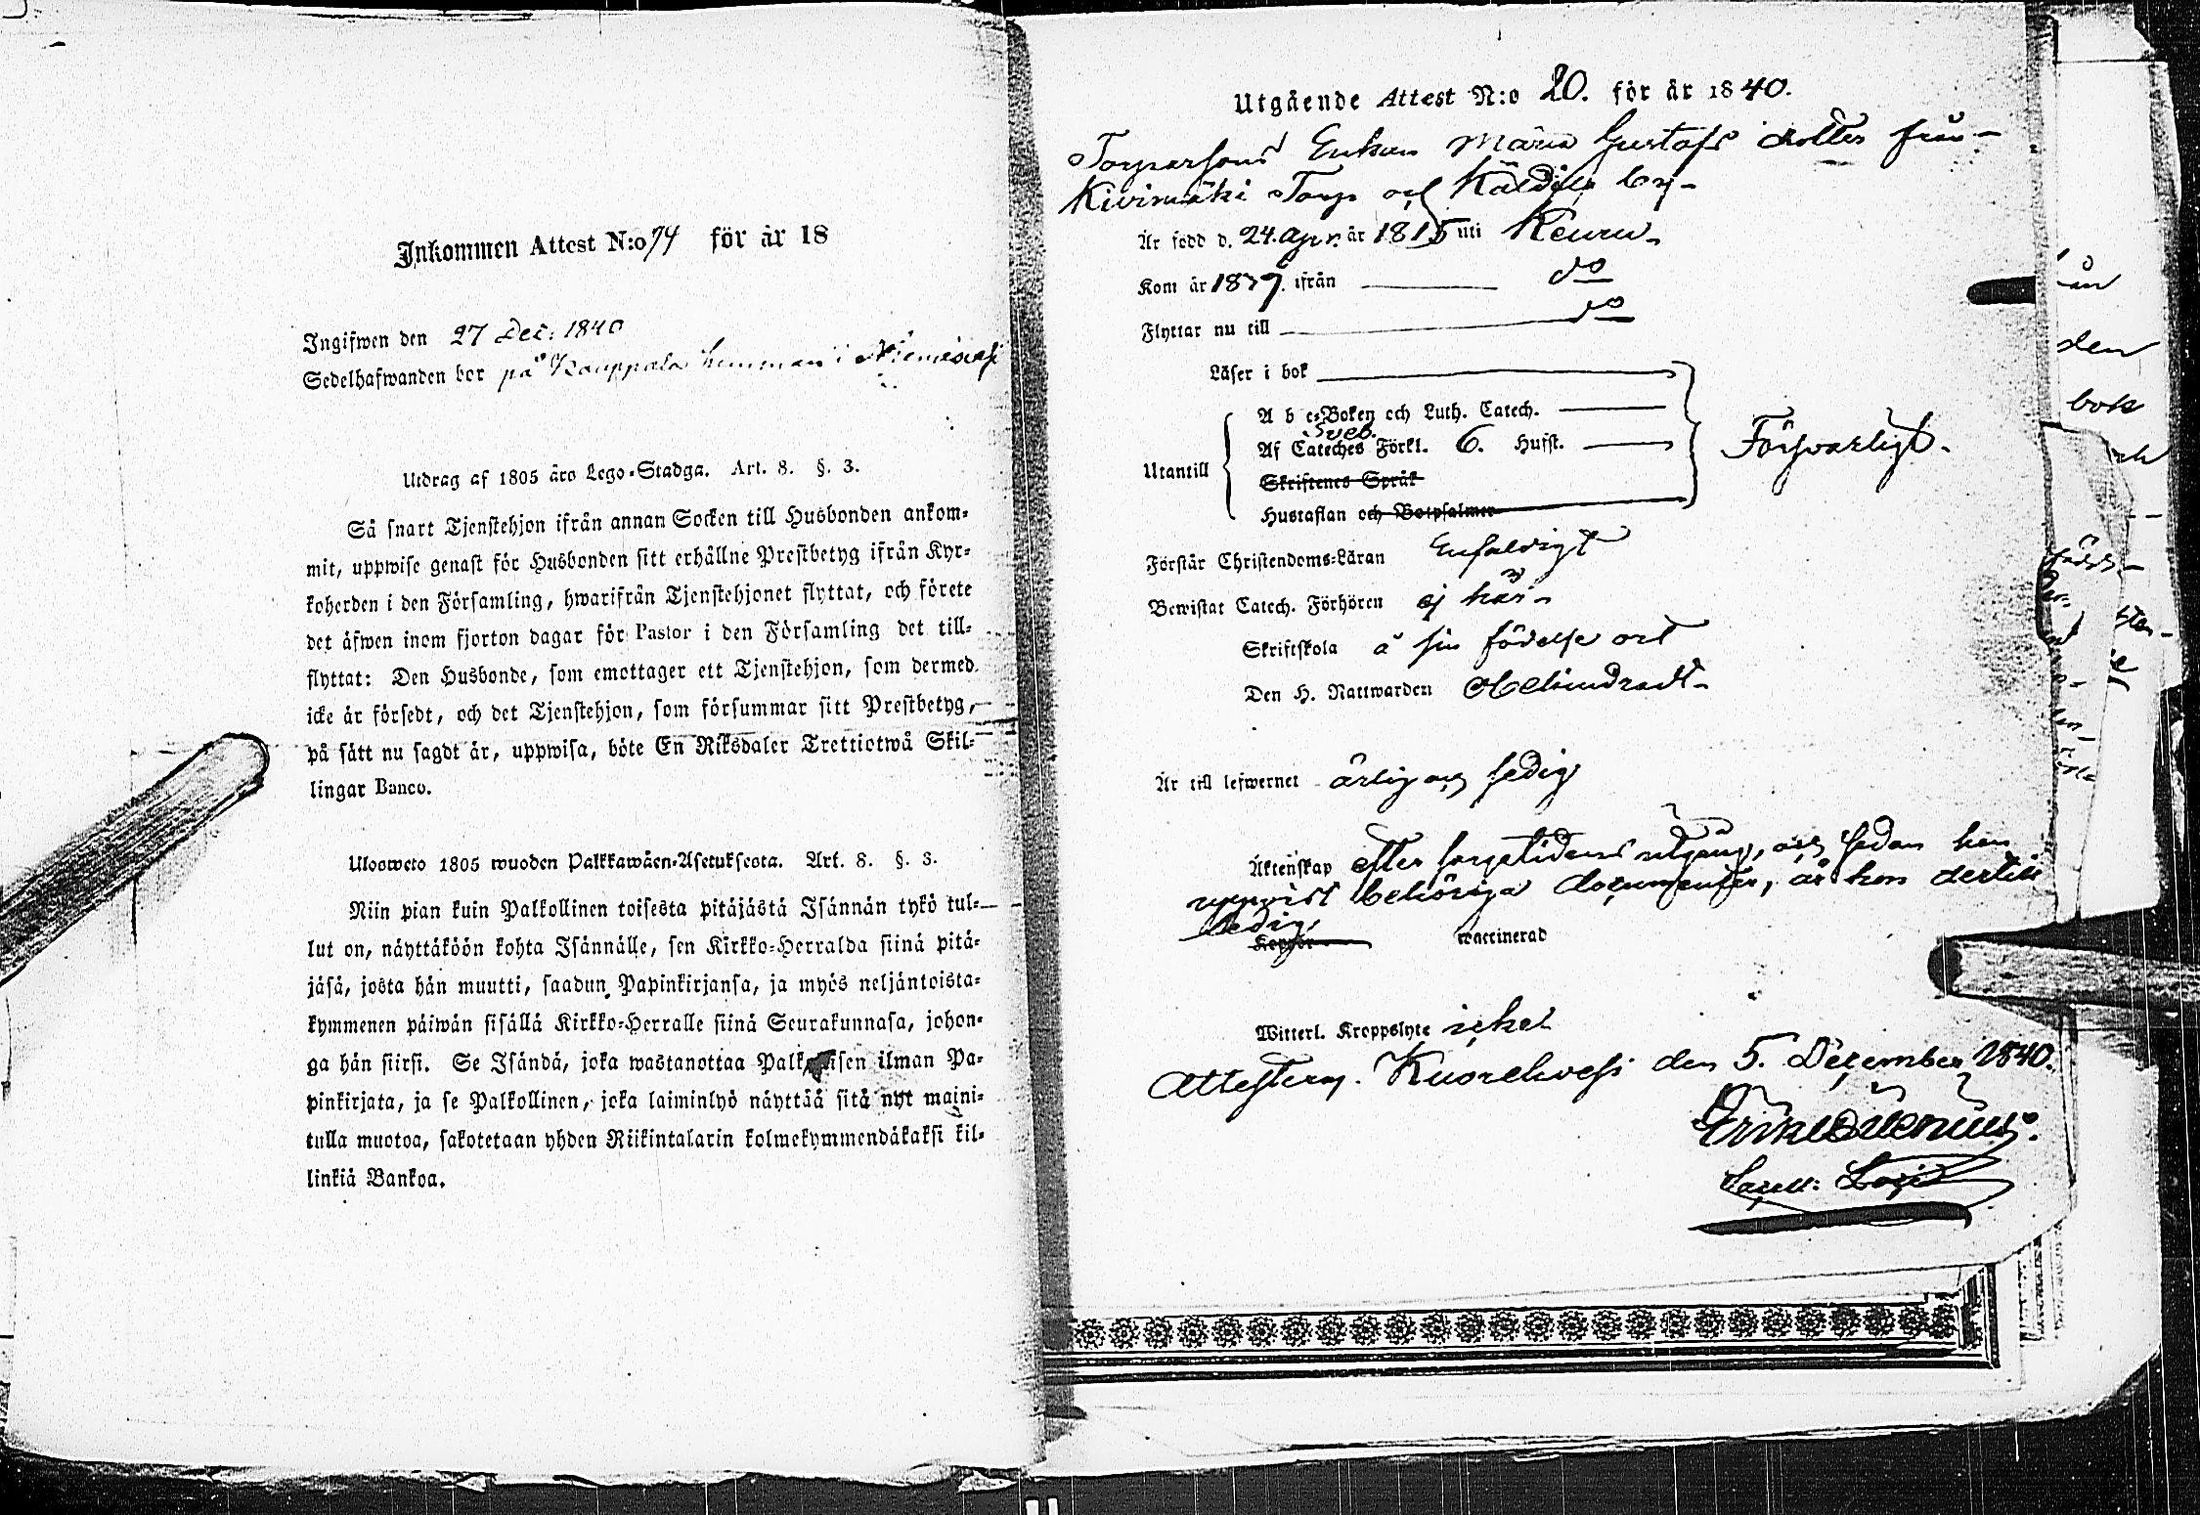 Inkommen Attest N:o 74 för år 18
Ingifwen den 27 Dec: 1840
Sedelhafwanden bor på Kauppala hemman i
Utdrag af 1805 åro Lego-Stadga. Art. 8. §. 3.
Så snart Tjenstehjon ifrån annan Socken till Husbonden ankom-
mit, uppwise genast för Husbonden sitt erhållne Prestbetyg ifrån Kyr-
koherden i den Församling, hwarifrån Tjenstehjonet flyttat, och förete
det äfwen inom fjorton dagar för Pastor i den Församling det till-
flyttat: Den Husbonde, som emottager ett Tjenstehjon, som dermed
icke är försedt, och det Tjenstehjon, som försummar sitt Prestbetyg,
på sätt nu sagdt är, uppwisa, böte En Riksdaler Trettiotwå Skil-
lingar Banco.
Ulosweto 1805 wuoden Palkkawäen-Asetuksesta. Art. 8. §. 3.
Niin pian kuin Palkollinen toisesta pitäjästä Isännän tykö tul-
lut on, näyttäköön kohta Isännälle, sen Kirkko-Herralda siinä pitä-
jäsä, josta hän muutti, saadun Papinkirjansa, ja myös neljäntoista-
kymmenen päiwän sisällä Kirkko-Herralle siinä Seurakunnasa, johon-
ga hän siirsi. Se Isändä, joka wastanottaa Palkollisen ilman Pa-
pinkirjata, ja se Palkollinen, joka laiminlyö näyttää sitä nyt maini-
tulla muotoa, sakotetaan yhden Riikintalarin kolmekymmendäkaksi kil-
linkiä Bankoa.
Utgående Attest N:o 20. för år 1840.
Torparsons Enkan Maria Gustafs dotter från
Kivimäki Torp och by
Är född d. 24. Apr. år 1815 uti Keuru
Kom år 1839. ifrån do
Flyttar nu till do
Läser i bok
A b c-Boken och Luth. Catech.
Sveb.
Utantill Af Cateches Förkl. 6. Hufst. Försvarligt.
Skriftenes Språk
Hustaflan och Botpsalmer
Förstår Christendoms-Läran Enfaldigt
Bewistat Catech. Förhören ej här
Skriftskola å sin födelse ort
Den H. Nattwarden Obehindradt
Är till lefwernet ärlig och sedig
Äktenskap efter sorgetidens utgång, och sedan hon
uppvist behöriga documenter, är hon dertill
ledig.
Koppor waccinerad
Witterl. Kroppslyte icke
Attesterar. Kuorehvesi den 5. December 1840.